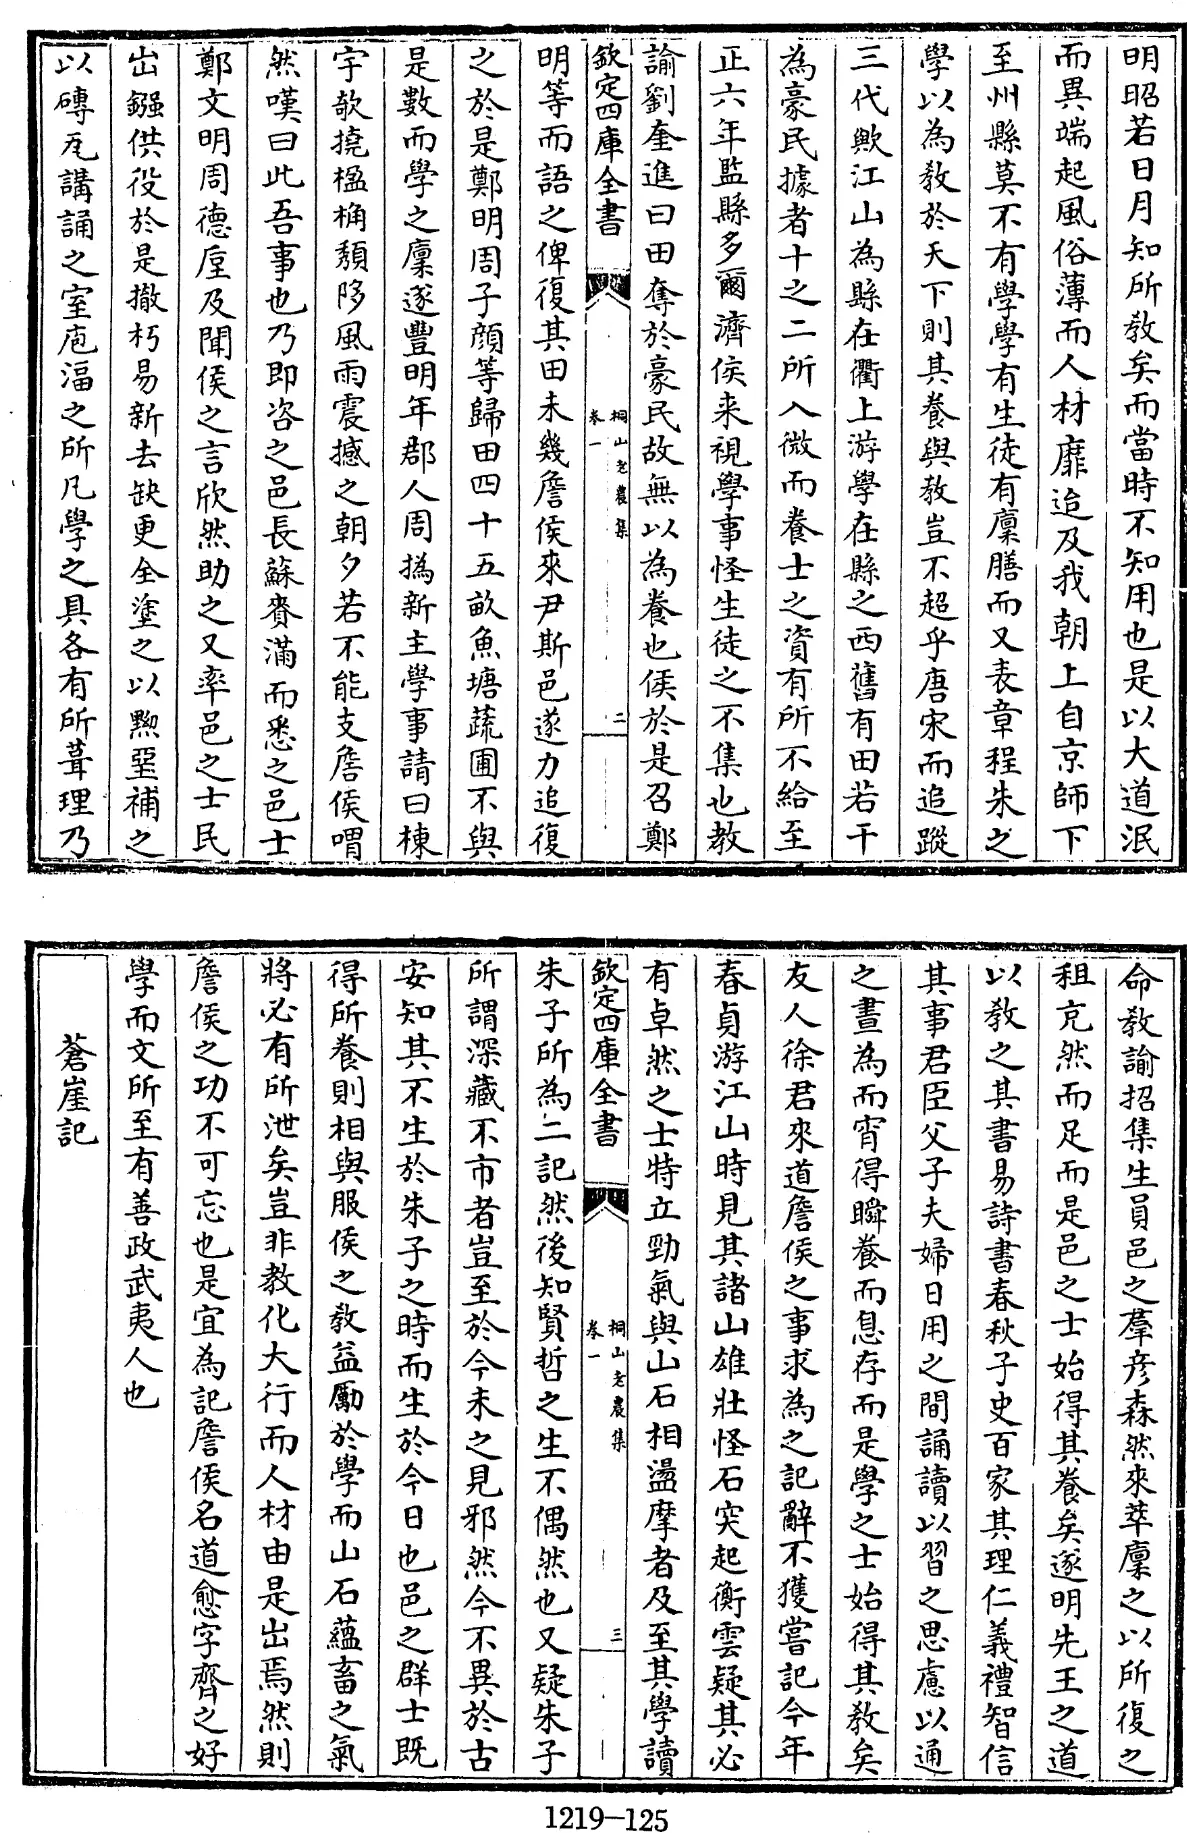 明昭若日月知所教矣而當時不知用也是以大道泯
而異端起風俗薄而人材靡迨及我朝上自京師下
至州縣莫不有學學有生徒有廩膳而又表章程朱之
學以為教於天下則其養與教豈不超乎唐宋而追蹤
三代歟江山為縣在衢上游學在縣之西舊有田若干
為豪民據者十之二所入微而養士之資有所不給至
正六年監縣多爾濟侯来視學事怪生徒之不集也教
諭劉奎進曰田奪於豪民故無以為養也侯於是召鄭
欽定四庫全書
桐山老農集
卷一
二
明等而語之俾復其田未幾詹侯來尹斯邑遂力追復
之於是鄭明周子顔等歸田四十五畝魚塘蔬圃不與
是數而學之廩遂豐明年郡人周撝新主學事請曰棟
宇欹撓楹桷頽陊風雨震撼之朝夕若不能支詹侯喟
然嘆曰此吾事也乃即咨之邑長蘇賚滿而悉之邑士
鄭文明周德垕及聞侯之言欣然助之又率邑之士民
出鏹供役於是撤朽易新去缺更全塗之以黝堊補之
以磚瓦講誦之室庖湢之所凡學之具各有所葺理乃
命教諭招集生員邑之羣彦森然來萃廩之以所復之
租充然而足而是邑之士始得其養矣遂明先王之道
以教之其書易詩書春秋子史百家其理仁義禮智信
其事君臣父子夫婦日用之間誦讀以習之思慮以通
之晝為而宵得瞬養而息存而是學之士始得其教矣
友人徐君來道詹侯之事求為之記辭不獲嘗記今年
春貞游江山時見其諸山雄壯怪石突起衝雲疑其必
有卓然之士特立勁氣與山石相盪摩者及至其學讀
欽定四庫全書
桐山老農集
卷一
三
朱子所為二記然後知賢哲之生不偶然也又疑朱子
所謂深藏不市者豈至於今未之見邪然今不異於古
安知其不生於朱子之時而生於今日也邑之群士既
得所養則相與服侯之教益勵於學而山石蘊畜之氣
將必有所泄矣豈非教化大行而人材由是出焉然則
詹侯之功不可忘也是宜為記詹侯名道愈字齊之好
學而文所至有善政武夷人也
蒼崖記
1219—125